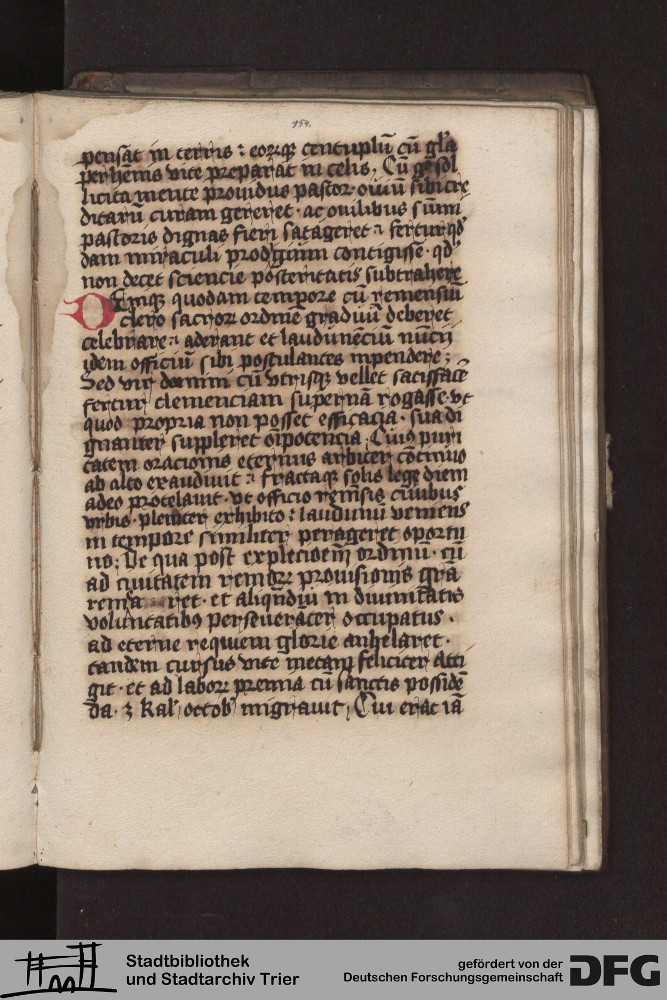 154.
pensāt in terris : eorūq̄ centuplū cū gl̄a
perhēnis vite preparat in celis, Cū g° sol
licita mente prouidus pastor ouiū sibi cre
ditarū curam gereret · ac ouilibus sūmi
pastoris dignas fieri satageret : fertur qd
dam miraculi prodigium contigisse · qd
non decet sciencie posteritatis subtrahere
Deniq̄ quodam tempore cū remensiū
clero sacror ordine graduū deberet
celebrare : aderant et laudunēciū nūcij
idem officiū sibi postulantes inpendere ;
Sed vir domini cū vtrisq̄ vellet satisfacē
fertur clemenciam supernā rogasse · vt
quod propria non posset efficacia · sua di
gnanter suppleret ōipotencia, Cuiꝰ puri
tatem oracionis eternus arbiter cōtinuo
ab alto exaudiuit : fractaq̄ solis lege diem
adeo protelauit · vt officio remsis ciuibus
vrbis · pleniter exhibito : laudunū veniens
in tempore similiter perageret oportu
no; De qua post explecioēm ordinū · cū
ad ciuitatem remor prouisionis grā
ret · et aliqndiu in diuinitatis
voluntatibꝰ perseueracter occupatus ·
ad eterne requiem glorie anhelaret ·
tandem cursus vite metam feliciter atti
git · et ad labor premia cū sanctis possidē
da · 3 Kal octob migrauit, Cui erat iā
Stadtbibliothek
und Stadtarchiv Trier
gefördert von der
Deutschen Forschungsgemeinschaft
DFG